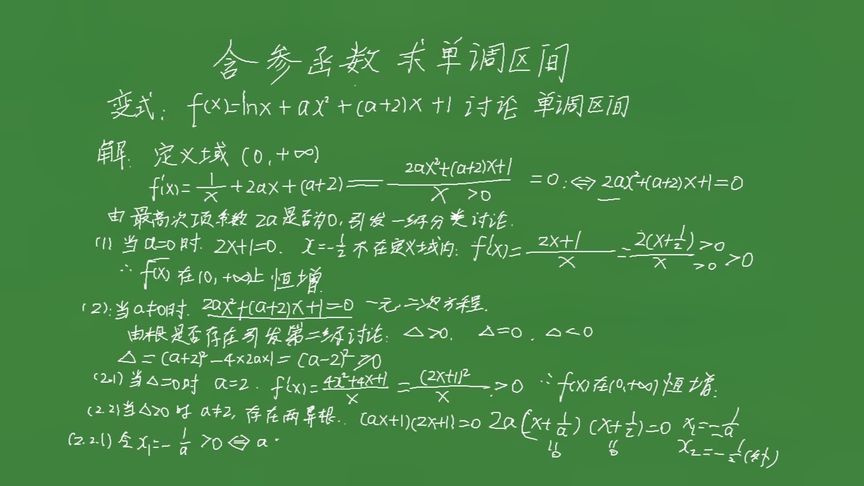 含参函数 求单调区间
变式: f(x)=lnx+ax²+(a+2)x+1 讨论 单调区间
解: 定义域 (0,+∞)
f'(x)=1/x+2ax+(a+2)=(2ax²+(a+2)x+1)/x >0 =0 ⇔ 2ax²+(a+2)x+1=0
由最高次项系数 2a是否为0,引发一级分类讨论.
(1) 当a=0时. 2x+1=0. x=-1/2 不在定义域内: f'(x)=(2x+1)/x=2(x+1/2)>0/x>0 >0
∴ f(x) 在(0,+∞)上 恒增.
(2):当a≠0时. 2ax²+(a+2)x+1=0 一元二次方程.
由根是否存在引发第二级讨论: △>0. △=0. △<0
△=(a+2)²-4×2a×1=(a-2)²≥0
(2.1) 当△=0时 a=2. f'(x)=(4x²+4x+1)/x=(2x+1)²/x>0 ∴f(x)在(0,+∞)恒增.
(2.2)当△>0时 a≠2, 存在两异根.. (ax+1)(2x+1)=0 2a(x+1/a)(x+1/2)=0 x₁=-1/a
x₂=-1/2(外)
(2.2.1) 令x₁=-1/a>0⇔a